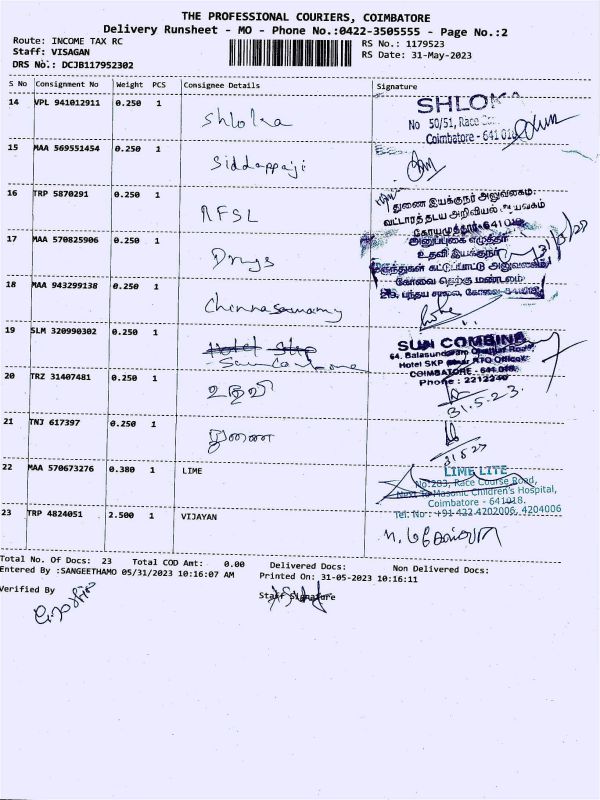 THE PROFESSIONAL COURIERS, COIMBATORE
Delivery Runsheet - MO - Phone No.:0422-3505555 - Page No.:2
Route: INCOME TAX RC
Staff: VISAGAN
DRS No.: DCJB117952302
RS No.: 1179523
RS Date: 31-May-2023
S No Consignment No Weight PCS Consignee Details Signature
14 VPL 941012911 0.250 1 Shloka
SHLOKA
No 50/51, Race
Coimbatore - 641 018
15 MAA 569551454 0.250 1 Siddappaji
16 TRP 5870291 0.250 1 RFSL
துணை இயக்குநர் அலுவலகம்
வட்டாரத் தடய அறிவியல் ஆய்வகம்
கோயமுத்தூர்-641018
17 MAA 570825906 0.250 1 Drugs
அனுப்புகை எழுத்தர்
உதவி இயக்குநர்
மருந்துகள் கட்டுப்பாட்டு அலுவலகம்
கோவை தெற்கு மண்டலம்
219, பந்தய சாலை, கோவை-641018
18 MAA 943299138 0.250 1 Chinnasamy
19 SLM 320990302 0.250 1 Hotel Skp
Suncombine
SUN COMBINE
64, Balasundaram Road
Hotel SKP RTO Office
COIMBATORE - 641 018.
Phone : 2212240
20 TRZ 31407481 0.250 1 உதவி
31.5.23
21 TNJ 617397 0.250 1 துணை
31 5 23
22 MAA 570673276 0.380 1 LIME
LIME LITE
No:203, Race Course Road,
Next To Masonic Children's Hospital,
Coimbatore - 641018.
Tel. No : +91 422 4202006, 4204006
23 TRP 4824051 2.500 1 VIJAYAN
Total No. Of Docs: 23 Total COD Amt: 0.00 Delivered Docs: Non Delivered Docs:
Entered By :SANGEETHAMO 05/31/2023 10:16:07 AM Printed On: 31-05-2023 10:16:11
Verified By Staff Signature